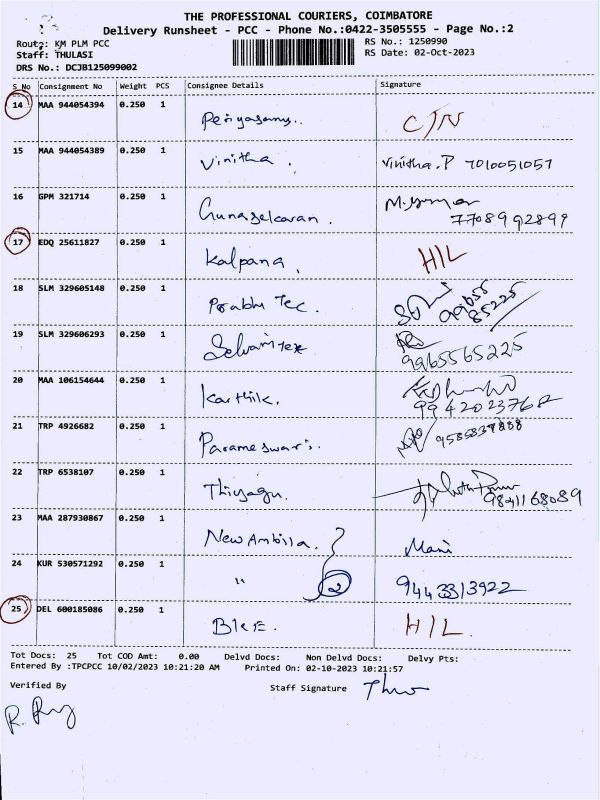 THE PROFESSIONAL COURIERS, COIMBATORE
Delivery Runsheet - PCC - Phone No.:0422-3505555 - Page No.:2
Route: KM PLM PCC
RS No.: 1250990
Staff: THULASI
RS Date: 02-Oct-2023
DRS No.: DCJB125099002
S No Consignment No Weight PCS Consignee Details Signature
14 MAA 944054394 0.250 1 Periyasamy..
15 MAA 944054389 0.250 1 Vinitha, Vinitha.P 7010051057
16 GPM 321714 0.250 1 Gunaselkaran. 7708992899
17 EDQ 25611827 0.250 1 Kalpana, H/L
18 SLM 329605148 0.250 1 Prabhu Tec. 99655 85225
19 SLM 329606293 0.250 1 Selvam Tex 9965565225
20 MAA 106154644 0.250 1 Karthik. 9942023768
21 TRP 4926682 0.250 1 Parameswari.
22 TRP 6538107 0.250 1 Thiyagu. 9841168089
23 MAA 287930867 0.250 1 New Ambika. Mani
24 KUR 530571292 0.250 1 " 2 9443313922
25 DEL 600185086 0.250 1 H/L.
Tot Docs: 25 Tot COD Amt: 0.00 Delvd Docs: Non Delvd Docs: Delvy Pts:
Entered By :TPCPCC 10/02/2023 10:21:20 AM Printed On: 02-10-2023 10:21:57
Verified By Staff Signature